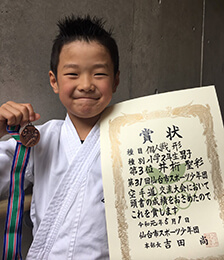 賞状
種目 個人戦 形
種別 小学2年生男子
第3位 井 聖彩
第31回仙台市スポーツ少年団
空手道交流大会において
頭書の成績をおさめたので
これを賞します
令和元年5月1日
仙台市スポーツ少年団
本部長 吉田 尚